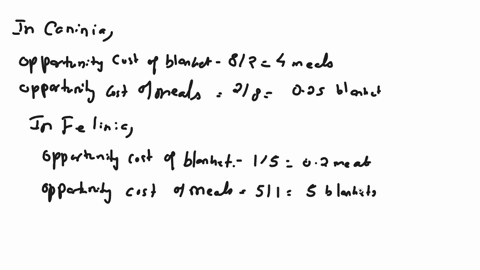 In Caninia,
opportunity cost of blanket - 8/2 = 4 meals
opportunity cost of meals = 2/8 = 0.25 blanket
In Felinia,
opportunity cost of blanket - 1/5 = 0.2 meal
opportunity cost of meals = 5/1 = 5 blankets